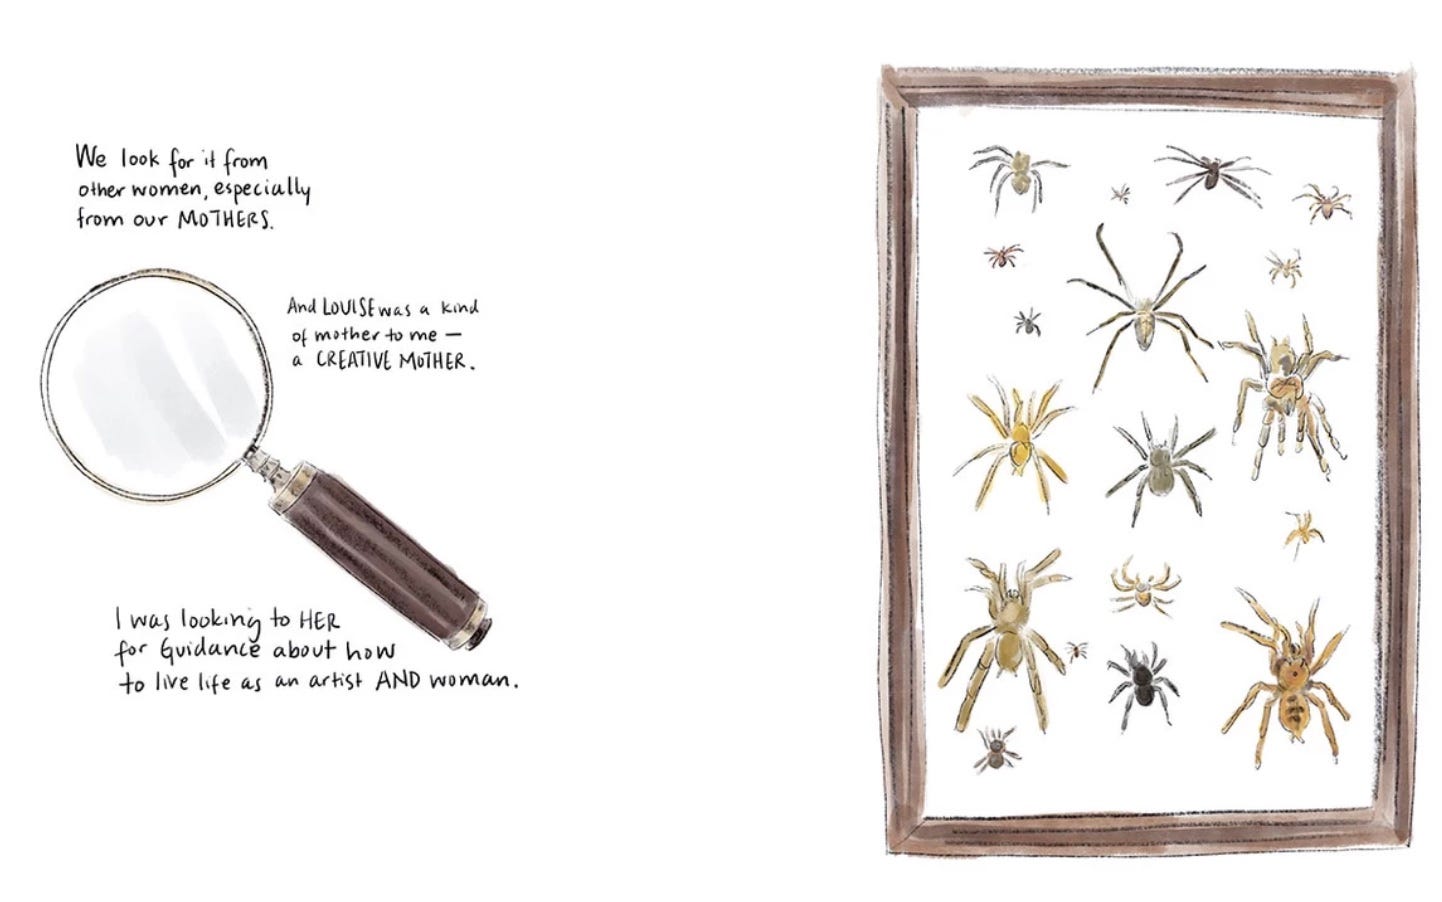 We look for it from
other women, especially
from our MOTHERS.
And LOUISE was a kind
of mother to me —
a CREATIVE MOTHER.
I was looking to HER
for Guidance about how
to live life as an artist AND woman.